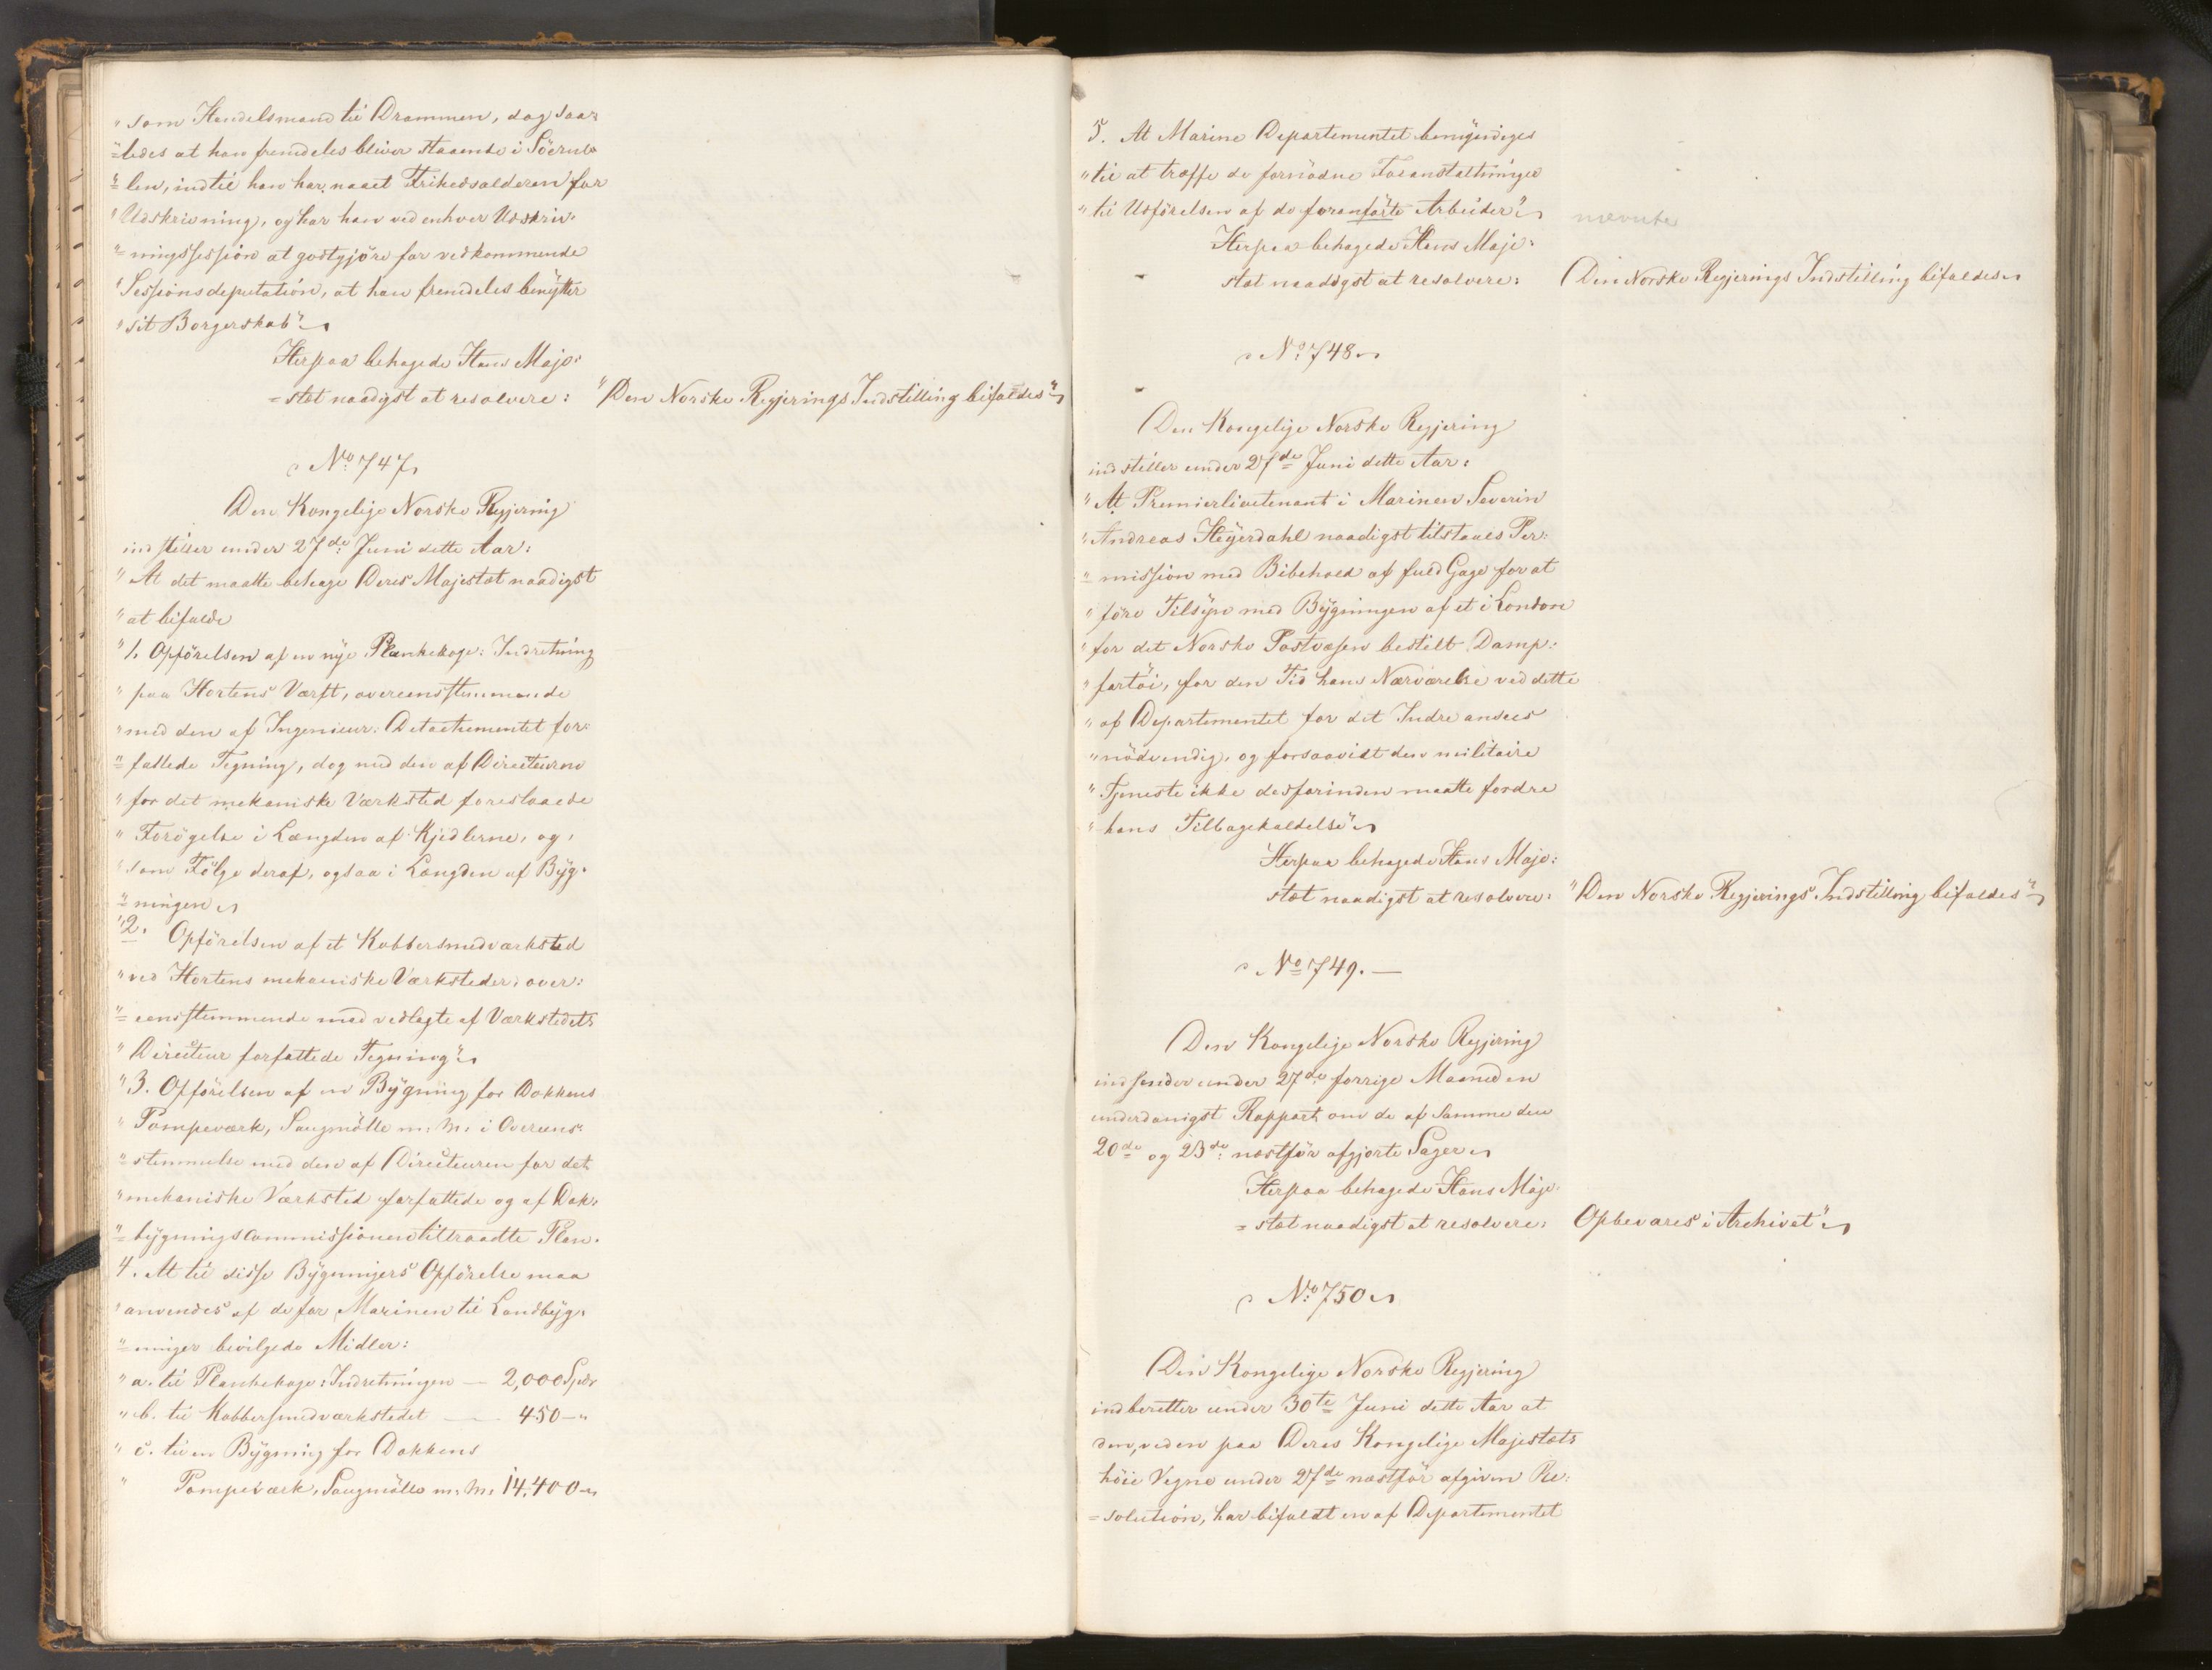 "som Handelsmand til Drammen, dog saa=
"=ledes at han fremdeles bliver staaende i Söerul=
"=len, indtil han har naaet Frihedsalderen for
"Udskrivning, og har han ved enhver Udskriv=
"=ningssession at godtgjöre for vedkommende
"Sessionsdeputation, at han fremdeles benytter
"sit Borgerskab"
Herpaa behagede Hans Maje=
=stæt naadigst at resolvere: "Den Norske Regjerings Indstilling bifaldes"
No. 747
Den Kongelige Norske Regjering
indstiller under 27de Juni dette Aar:
"At det maatte behage Deres Majestæt naadigst
"at bifalde
"1. Opförelsen af en nye Plankekoge=Indretning
"paa Hortens Værft, overeensstemmende
"med den af Ingenieur=Detachementet for=
"=fattede Tegning, dog med den af Directeuren
"for det mekaniske Værksted foreslaaede
"Forögelse i Længden af Kjedlerne, og,
"som Fölge deraf, ogsaa i Længden af Byg=
"=ningen
"2. Opförelsen af et Kobbersmedværksted
"ved Hortens mekaniske Værksteder, over=
"=eensstemmende med vedlagte af Værkstedets
"Directeur forfattede Tegning"
"3. Opförelsen af en Bygning for Dokkens
"Pompeværk, Saugmölle m. m. i Overeens=
"=stemmelse med den af Directeuren for det
"mekaniske Værksted forfattede og af Dok=
"=bygningscommissionen tiltraadte Plan.
4. At til disse Bygningers Opförelse maa
"anvendes af de for Marinen til Landbyg=
"=ninger bevilgede Midler:
"a. til Plankekoge=Indretningen — 2,000 Spdr
"b. til Kobbersmedværkstedet — 450 — "
"c. til en Bygning for Dokkens
" Pompeværk, Saugmölle m. m. 14,400 — "
5. At Marine Departementet bemyndiges
"til at træffe de fornödne Foranstaltninger
"til Udförelsen af de foranförte Arbeider" nævnte
Herpaa behagede Hans Maje=
stæt naadigst at resolvere: Den Norske Regjerings Indstilling bifaldes
No. 748
Den Kongelige Norske Regjering
indstiller under 27de Juni dette Aar:
"At Premierlieutenant i Marinen Severin
"Andreas Heyerdahl naadigst tilstaaes Per=
"=mission med Bibehold af fuld Gage for at
"före Tilsyn med Bygningen af et i London
"for det Norske Postvæsen bestilt Damp=
"fartöi, for den Tid hans Nærværelse ved dette
"af Departementet for det Indre ansees
"nödvendig, og forsaavidt den militaire
"Tjeneste ikke desforinden maatte fordre
"hans Tilbagekaldelse"
Herpaa behagede Hans Maje=
stæt naadigst at resolvere: "Den Norske Regjerings Indstilling bifaldes"
No 749. —
Den Kongelige Norske Regjering
indsender under 27de forrige Maaned en
underdanigst Rapport om de af Samme den
20de og 23de næstför afgjorte Sager
Herpaa behagede Hans Maje=
=stæt naadigst at resolvere: Opbevares i Archivet"
No. 750
Den Kongelige Norske Regjering
indberetter under 30te Juni dette Aar at
den, ved en paa Deres Kongelige Majestæts
höie Vegne under 27de næstför afgiven Re=
=solution, har bifaldt en af Departementet